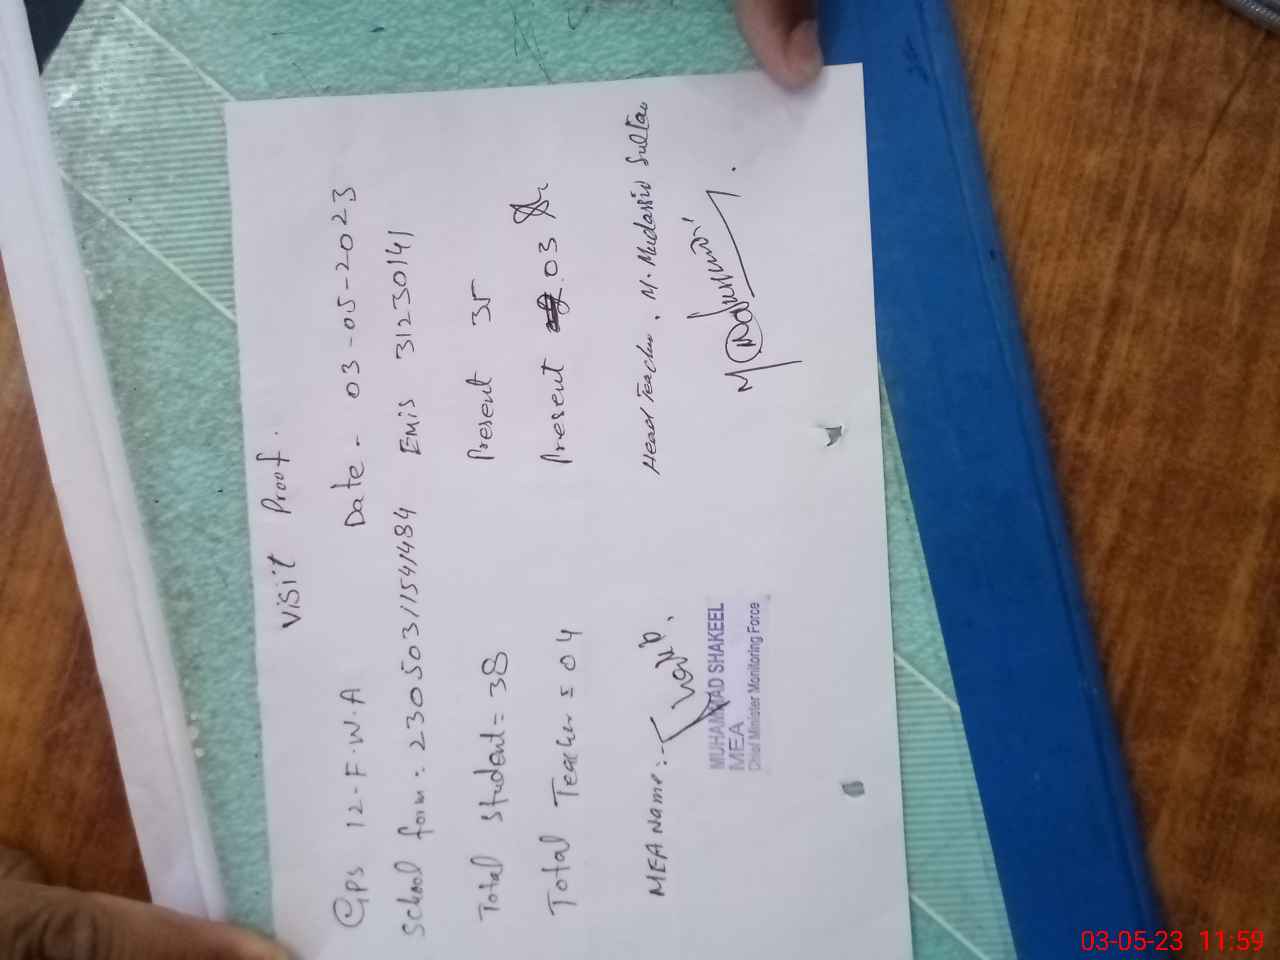 Visit Proof.
GPS 12-F.W.A Date - 03-05-2023
School form: 23050311541484 EMIS 31230141
Total Student = 38 Present 35
Total Teacher = 04 Present 03
MEA Name:- Head Teacher . M. Mudassir Sultan
MUHAMMAD SHAKEEL
MEA
Chief Minister Monitoring Force
03-05-23 11:59